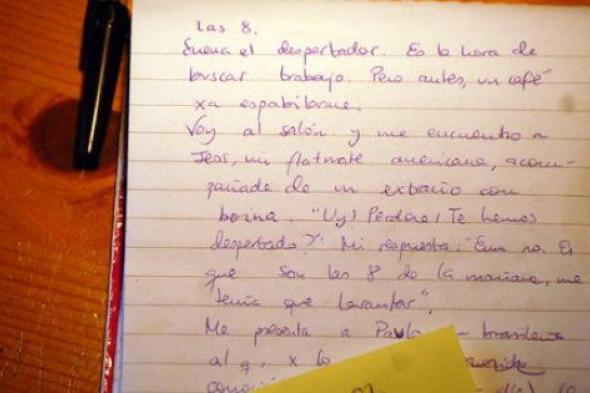 Las 8.
Suena el despertador. Es la hora de
buscar trabajo. Pero antes, un café
xa espabilarme.
Voy al salón y me encuentro a
Jess, mi flatmate americana, acom-
pañada de un extraño con
boina. "Uy! Perdona! Te hemos
despertado?". Mi respuesta: "Eum no. Es
que son las 8 de la mañana, me
tenía que levantar".
Me presenta a Paulo brasileño
al q, x lo